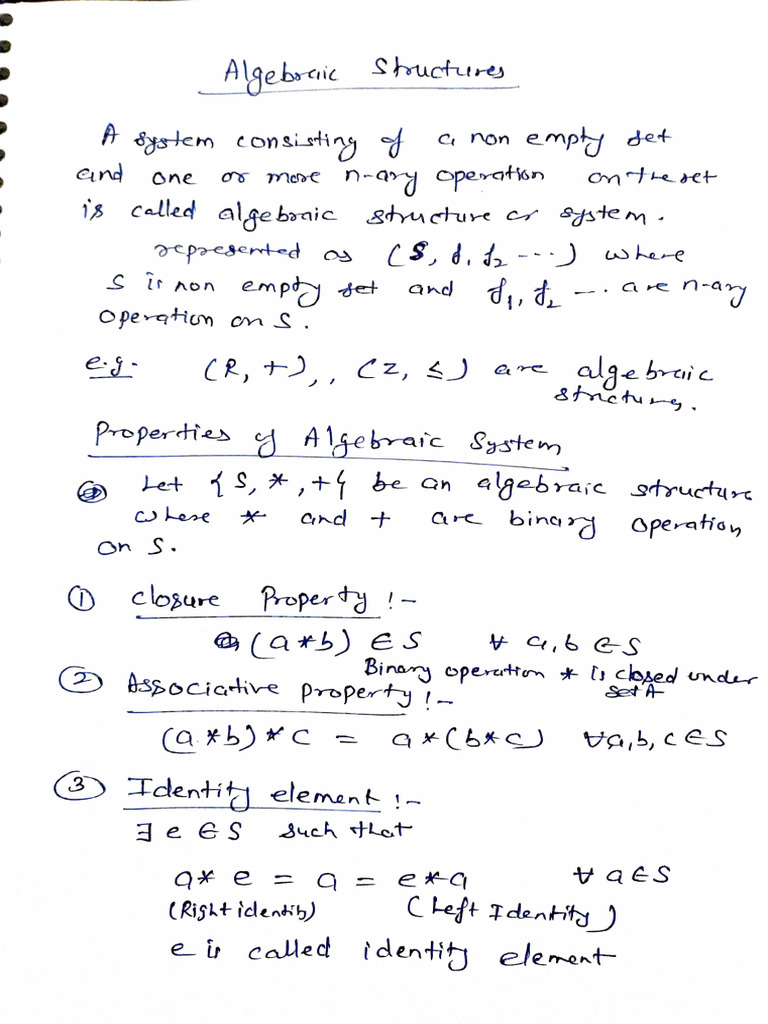 Algebraic Structures
A system consisting of a non empty set
and one or more n-ary operation on the set
is called algebraic structure or system.
represented as (S, f, f₂ ---) where
S is non empty set and f₁, f₂ --. are n-ary
operation on S.
e.g. (R, +), , (Z, ≤) are algebraic
structures.
Properties of Algebraic System
Let {S, *, +} be an algebraic structure
where * and + are binary operation
on S.
① Closure Property !-
(a*b) ∈ S ∀ a,b ∈ S
Binary operation * is closed under
set A
② Associative property !-
(a*b)*c = a*(b*c) ∀a,b,c ∈ S
③ Identity element !-
∃ e ∈ S such that
a* e = a = e*a ∀ a∈S
(Right identity) (Left Identity)
e is called identity element